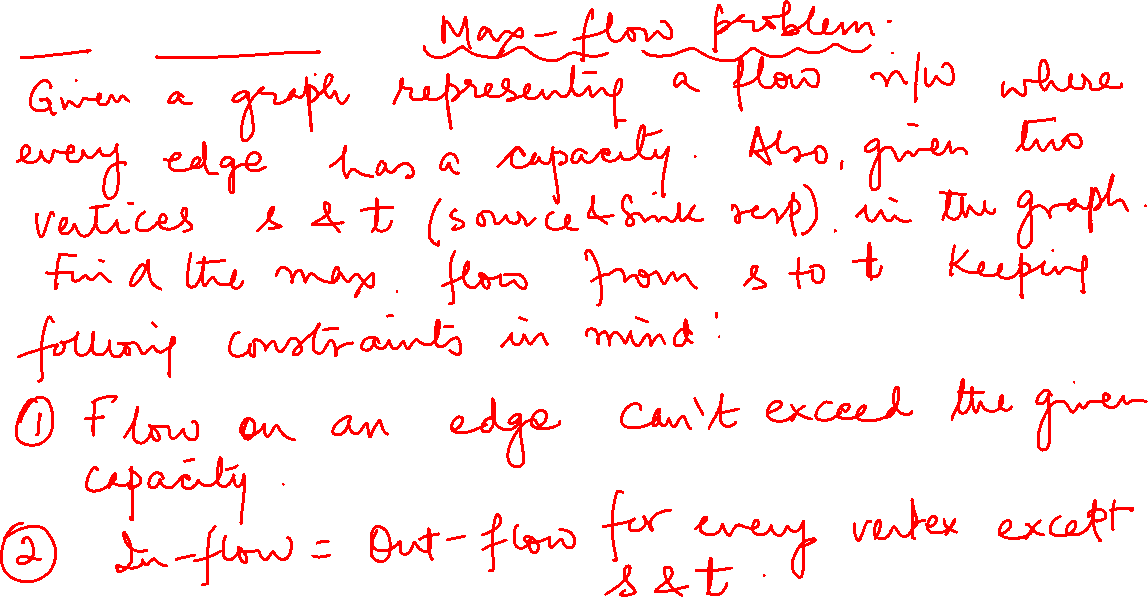 Max-flow problem.
Given a graph representing a flow n/w where
every edge has a capacity. Also, given two
vertices s & t (source & Sink resp). in the graph.
Find the max. flow from s to t keeping
following constraints in mind:
① Flow on an edge can't exceed the given
capacity.
② In-flow = Out-flow for every vertex except
s & t.